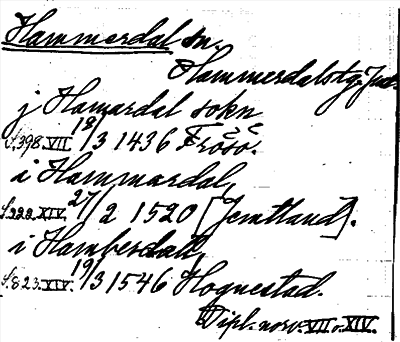 Hammerdal sn.
Hammerdals tg. Jmt.
j Hamardal sokn
S. 398. VII. 12/3 1436 Frösö.
i Hammardal,
S. 228. XIV. 27/2 1520 [Jemtland].
i Hamberdall,
S. 823. XIV. 19/3 1546 Hognestad.
Dipl. norv. VII o. XIV.